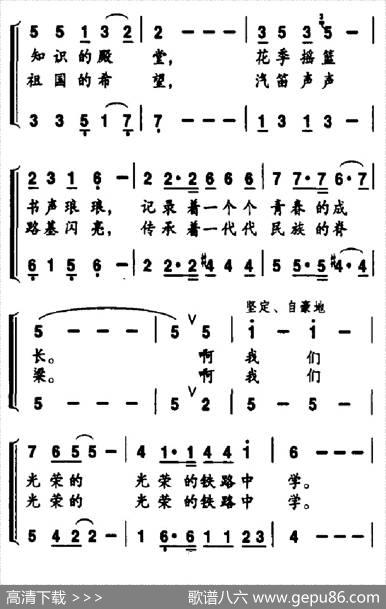 5 5 1 3 2 | 2 - - - | 3 5 3 5 - |
知识的殿 堂， 花季摇篮
祖国的希 望， 汽笛声声
3 3 5 1 7 | 7 - - - | 1 3 1 3 - |
2 3 1 6 - | 2 2·2 6 6 6 | 7 7·7 6·7 |
书声琅琅， 记录着一个个 青春的成
路基闪亮， 传承着一代代 民族的脊
6 1 5 6 - | 2 2·2 #4 4 4 | 5 5·5 #4·4 |
坚定、自豪地
5 - - - | 5 ∨ 5 | i - i - |
长。 啊 我 们
梁。 啊 我 们
5 - - - | 5 ∨ 2 | 5 - 5 - |
7 6 5 5 - | 4 1·1 4 4 i | 6 - - - |
光荣的 光荣的铁路中 学。
光荣的 光荣的铁路中 学。
5 4 2 2 - | 1 6·6 1 1 2 3 | 4 - - - |
高清下载 >>>
歌谱八六 www.gepu86.com